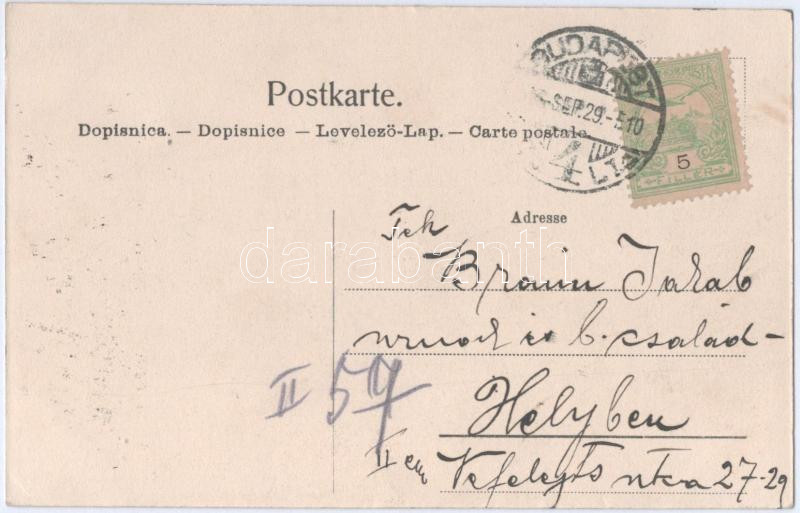 BUDAPEST
Postkarte.
SEP. 29.
Dopisnica. — Dopisnice — Levelező-Lap. — Carte postale.
4
5
FILLÉR
Adresse
darabanth
Braun Jakab
b. család-
II 57
Helyben
II em. Nefelejts utca 27-29